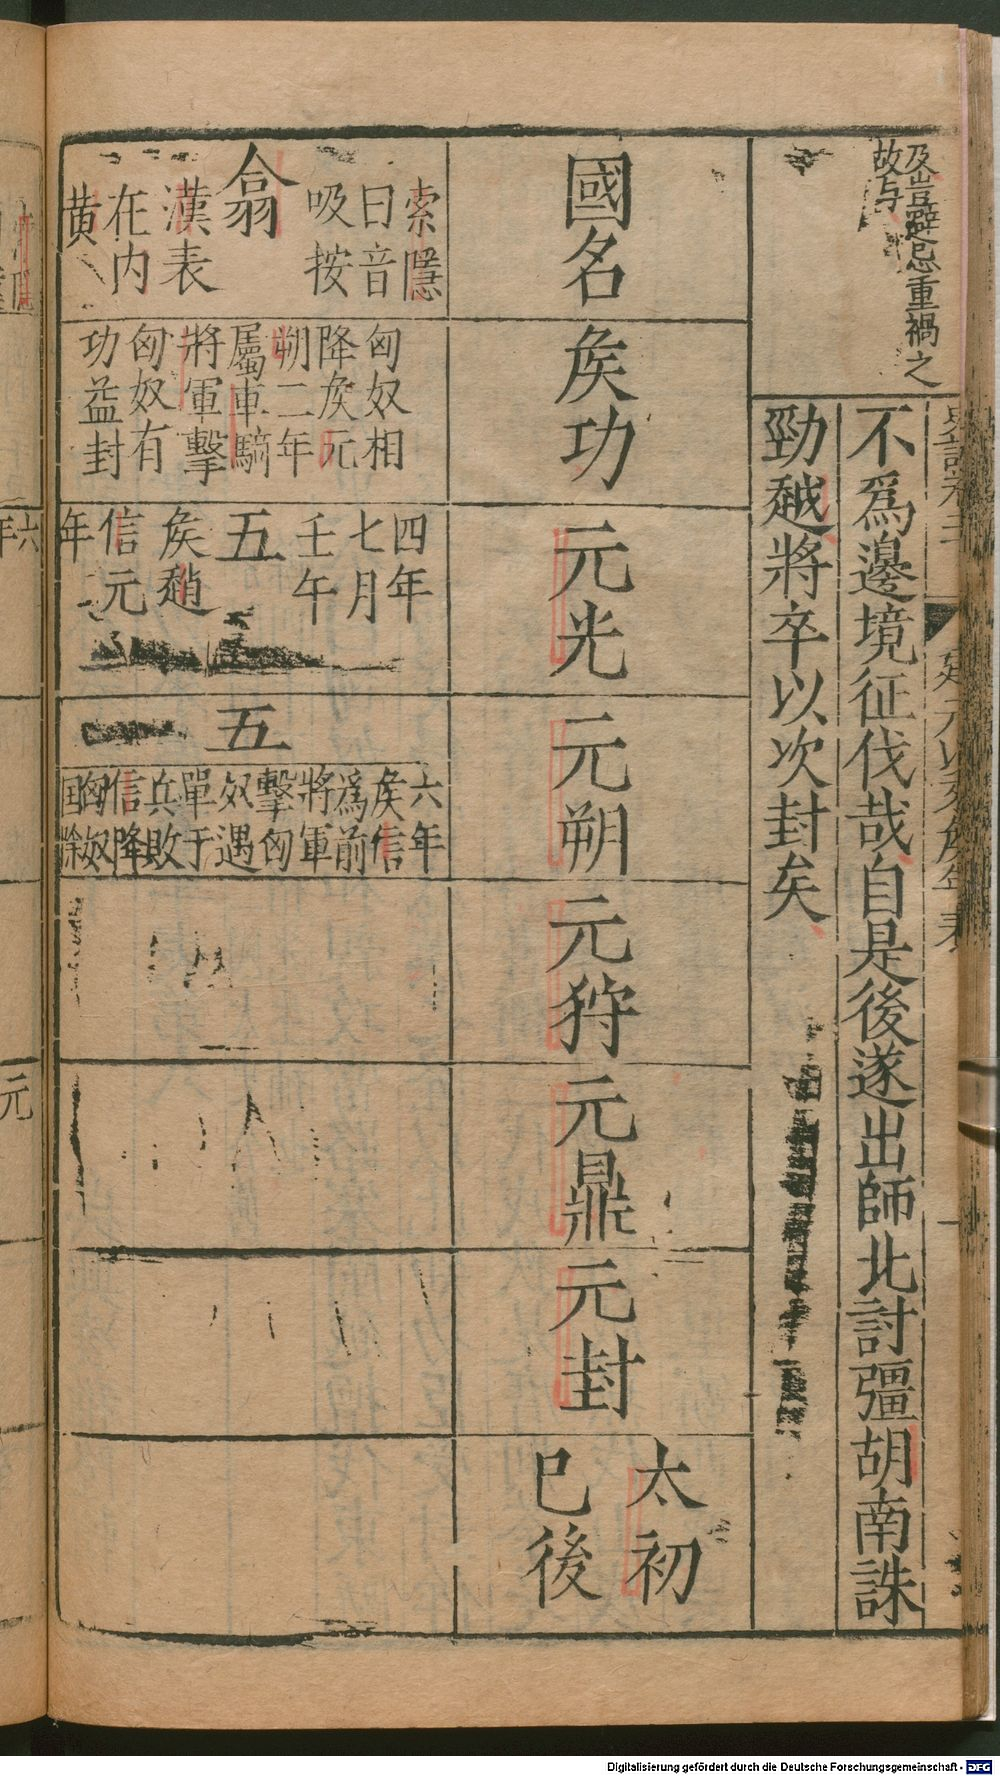 及豈避忌重禍之
故与
不爲邊境征伐哉自是後遂出師北討彊胡南誅
勁越將卒以次封矣
國名
矦功
元光
元朔
元狩
元鼎
元封
太初
已後
索隱
曰音
吸按
翕
漢表
在内
黄
匈奴相
降矦元
朔二年
屬車騎
將軍擊
匈奴有
功益封
四年
七月
壬午
五
矦趙
信元
年
五
六年
矦信
爲前
將軍
擊匈
奴遇
單于
兵敗
信降
匈奴
國除
六
年
元
Digitalisierung gefördert durch die Deutsche Forschungsgemeinschaft - DFG